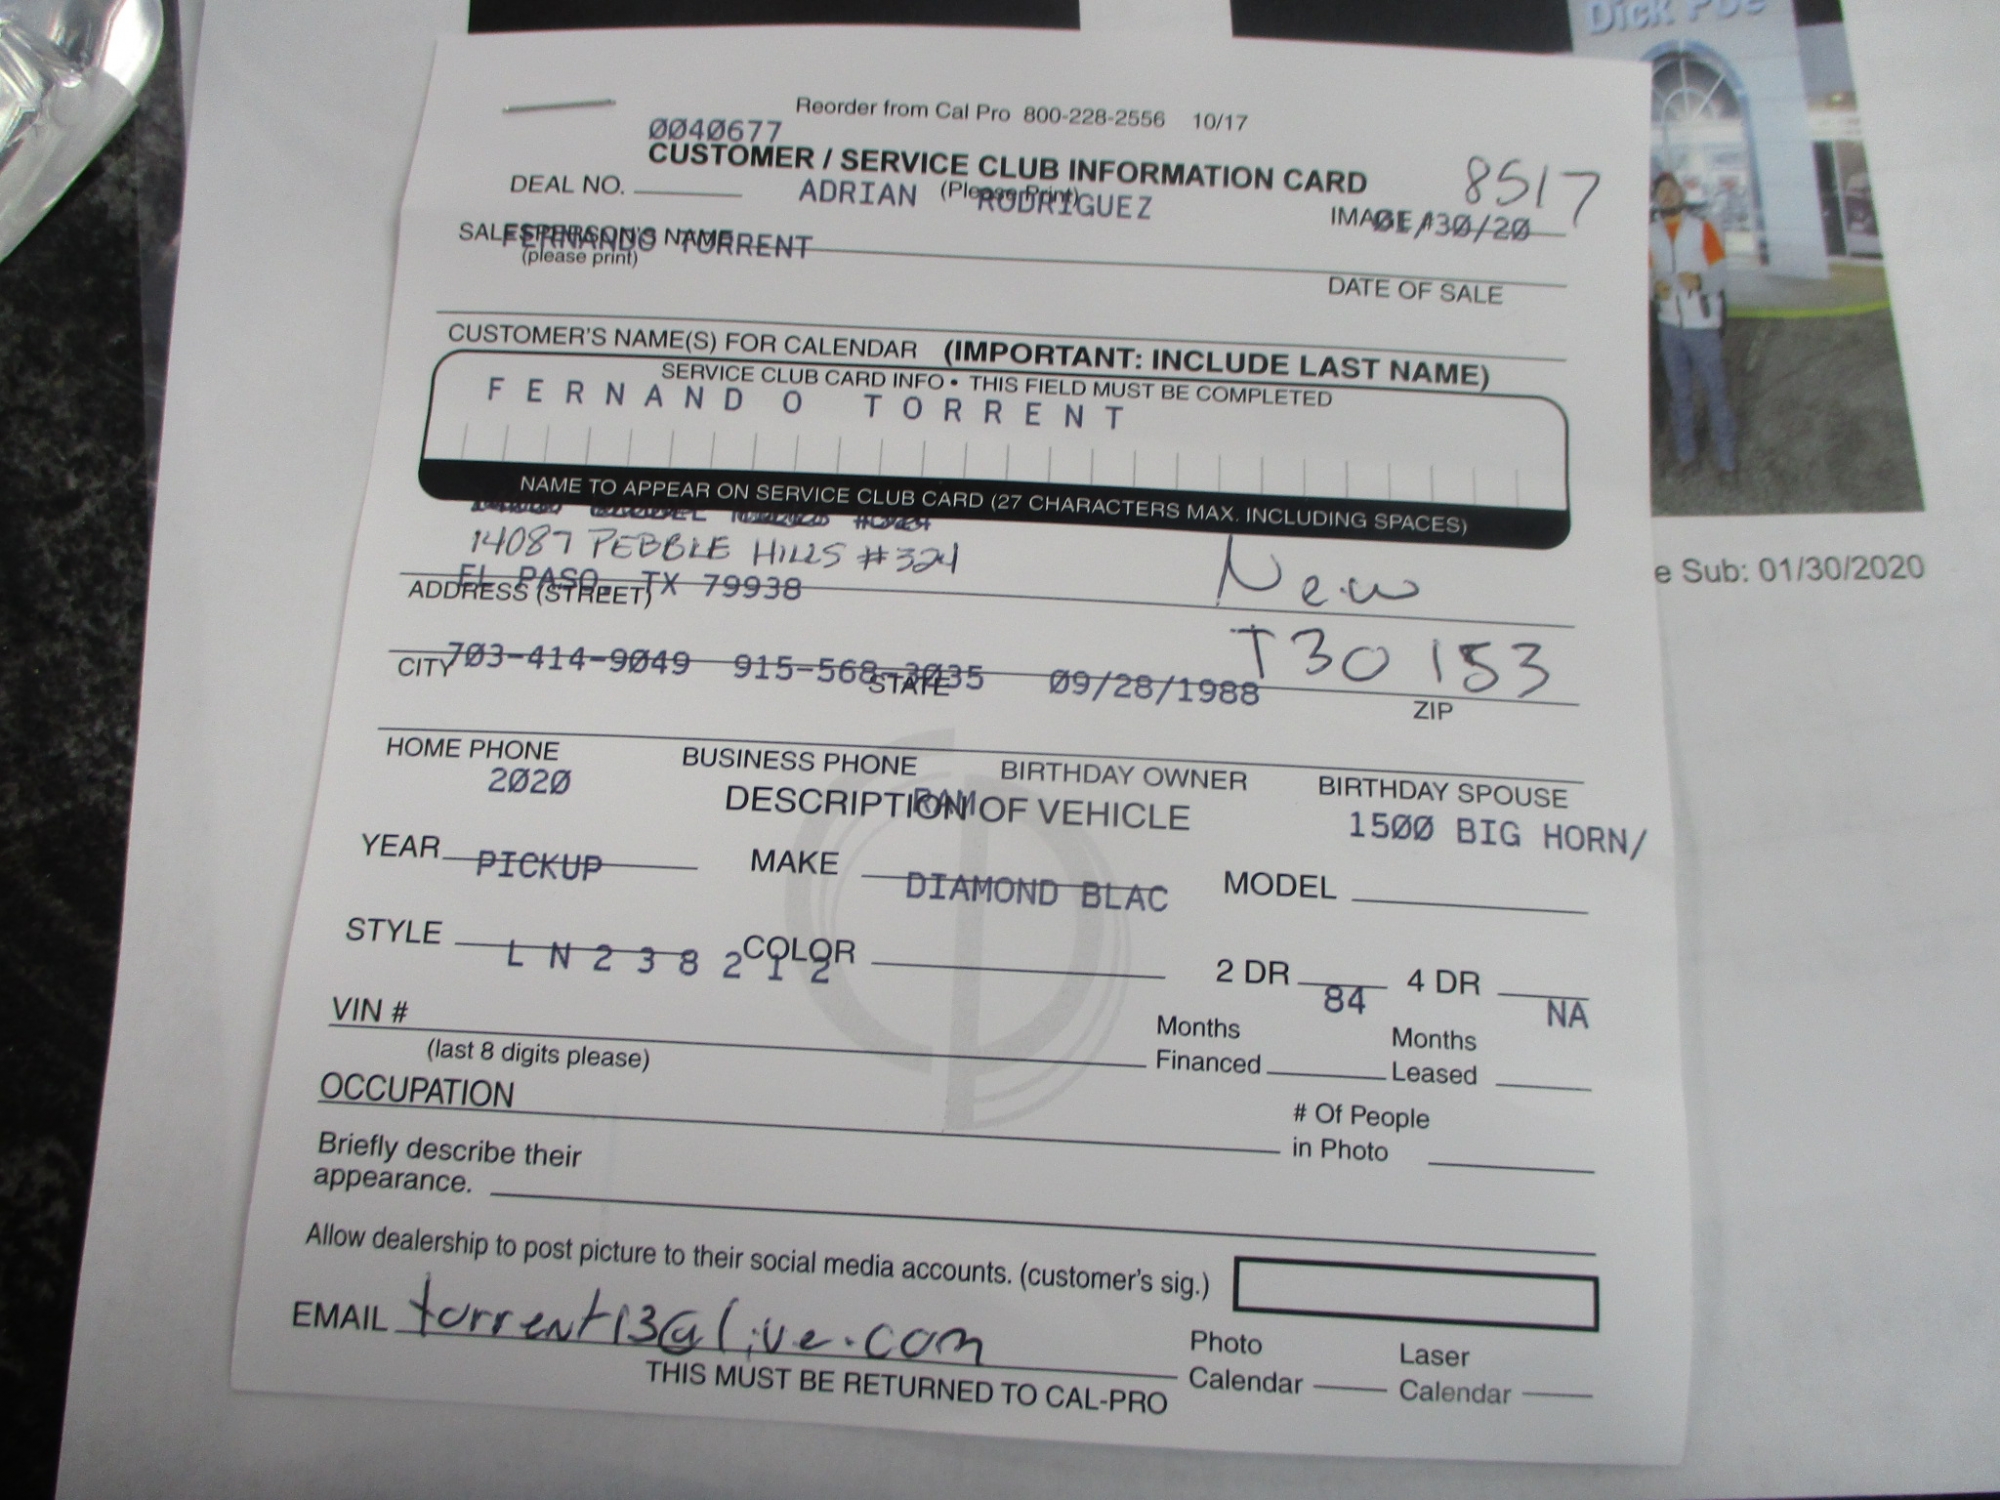 Dick Poe
Reorder from Cal Pro 800-228-2556 10/17
0040677
CUSTOMER / SERVICE CLUB INFORMATION CARD
8517
DEAL NO.
ADRIAN RODRIGUEZ
(Please Print)
IMAGE #
01/30/20
SALESPERSON'S NAME
FERNANDO TORRENT
(please print)
DATE OF SALE
CUSTOMER'S NAME(S) FOR CALENDAR (IMPORTANT: INCLUDE LAST NAME)
SERVICE CLUB CARD INFO • THIS FIELD MUST BE COMPLETED
FERNANDO TORRENT
NAME TO APPEAR ON SERVICE CLUB CARD (27 CHARACTERS MAX. INCLUDING SPACES)
14087 PEBBLE HILLS #324
New
e Sub: 01/30/2020
EL PASO, TX 79938
ADDRESS (STREET)
T30153
703-414-9049 915-568-3035 09/28/1988
CITY STATE ZIP
HOME PHONE BUSINESS PHONE BIRTHDAY OWNER BIRTHDAY SPOUSE
2020 RAM 1500 BIG HORN/
DESCRIPTION OF VEHICLE
YEAR MAKE MODEL
PICKUP DIAMOND BLAC
STYLE COLOR 2 DR 4 DR
LN238212 84 NA
VIN # Months Financed Months Leased
(last 8 digits please)
OCCUPATION # Of People in Photo
Briefly describe their
appearance.
Allow dealership to post picture to their social media accounts. (customer's sig.)
EMAIL torrent13@live.com
Photo Calendar Laser Calendar
THIS MUST BE RETURNED TO CAL-PRO